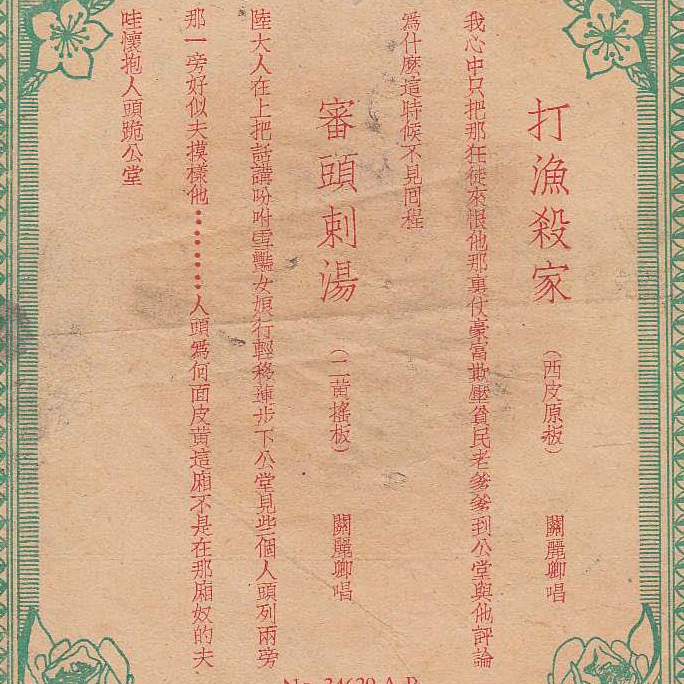 打漁殺家 (西皮原板) 關麗卿唱
我心中只把那狂徒來恨他那裏仗豪富欺壓貧民老爹爹到公堂與他評論
為什麼這時候不見囘程
審頭刺湯 (二黃搖板) 關麗卿唱
陸大人在上把話講吩咐雪艷女娘行輕移蓮步下公堂見些個人頭列兩旁
那一旁好似夫摸樣他⋯⋯⋯人頭為何面皮黃這廂不是在那廂奴的夫
哇懷抱人頭跪公堂
No. 34629 A-B